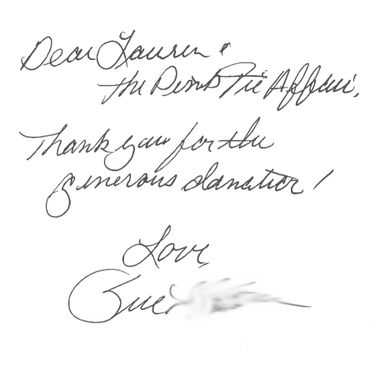 Dear Lauren &
the Pink Tie Affair,
Thank you for the
generous donation!
Love,
Sue